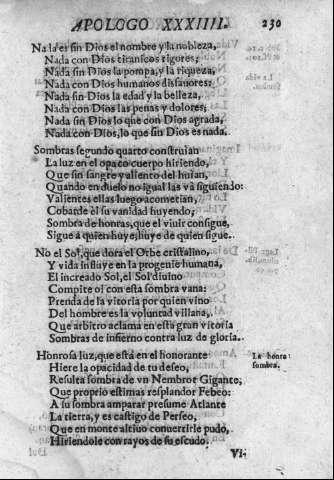 APOLOGO XXXIIII. 230
Nada es sin Dios el nombre y la nobleza,
Nada con Dios tiranicos rigores;
Nada sin Dios la pompa, y la riqueza,
Nada con Dios humanos disfauores;
Nada sin Dios la edad y la belleza,
Nada con Dios las penas y dolores;
Nada sin Dios lo que con Dios agrada,
Nada con Dios, lo que sin Dios es nada.
Sombras segundo quarto construian
La luz en el opaco cuerpo hiriendo,
Que sin sangre y aliento del huian,
Quando en duelo no igual las và siguiendo:
Valientes ellas luego acometian,
Cobarde èl su vanidad huyendo;
Sombra de honras, que el viuir consigue,
Sigue à quien huye, huye de quien sigue.
No el Sol, que dora el Orbe cristalino,
Y vida influye en la progenie humana,
El increado Sol, el Sol diuino
Compite oi con esta sombra vana:
Prenda de la vitoria por quien vino
Del hombre es la voluntad villana,
Que arbitro aclama en esta gran vitoria
Sombras de infierno contra luz de gloria.
Honrosa luz, que está en el honorante
La honra sombra.
Hiere la opacidad de tu deseo,
Resulta sombra de vn Nembrot Gigante,
Que proprio estimas resplandor Febeo:
A su sombra amparar presume Atlante
La tierra, y es castigo de Perseo,
Que en monte altiuo conuertirle pudo,
Hiriendole con rayos de su escudo.
VI-